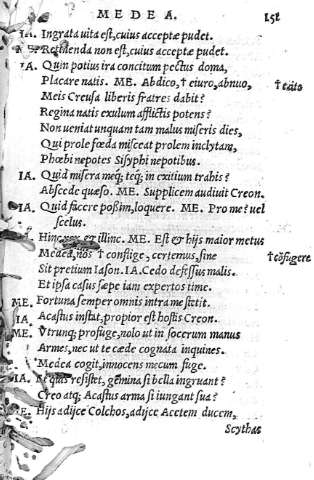 MEDEA. 151
IA. Ingrata uita est, cuius acceptæ pudet.
ME. Retinenda non est, cuius acceptæ pudet.
IA. Quin potius ira concitum pectus doma,
Placare natis. ME. Abdico, † eiuro, abnuo,
Meis Creusa liberis fratres dabit?
Regina natis exulum afflictis potens?
Non ueniat unquam tam malus miseris dies,
Qui prole fœda misceat prolem inclytam,
Phœbi nepotes Sisyphi nepotibus.
IA. Quid misera meq́; teq́; in exitium trahis?
Abscede quæso. ME. Supplicem audiuit Creon.
IA. Quid facere possim, loquere. ME. Pro me? uel
scelus.
Hinc rex & illinc. ME. Est & hijs maior metus
Medea, nos † conflige, certemus, sine
† cõfugere
Sit pretium Iason. IA. Cedo defessus malis.
Et ipsa casus sæpe iam expertos time.
ME. Fortuna semper omnis intra me stetit.
IA. Acastus instat, propior est hostis Creon.
ME. Vtrunq; profuge, nolo ut in socerum manus
Armes, nec ut te cæde cognata inquines.
Medea cogit, innocens mecum fuge.
IA. Et quis resistet, gemina si bella ingruant?
Creo atq; Acastus arma si iungant sua?
ME. Hijs adijce Colchos, adijce Aeetem ducem,
Scythas